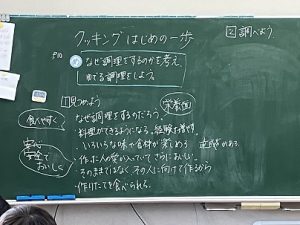 クッキングはじめの一歩
2 調べよう
P10
め なぜ調理をするのかを考え、
ゆでる調理をしよう。
1 見つめよう
栄養価
食べやすく
なぜ調理をするのだろう。
料理ができるようになる。経験も積む。
いろいろな味や食材が楽しめる
安全
安全で
おいしく
作った人の思いが入っていてさらにおいしい。
そのままではなく その人に向けて作るから
作りたてを食べられる。